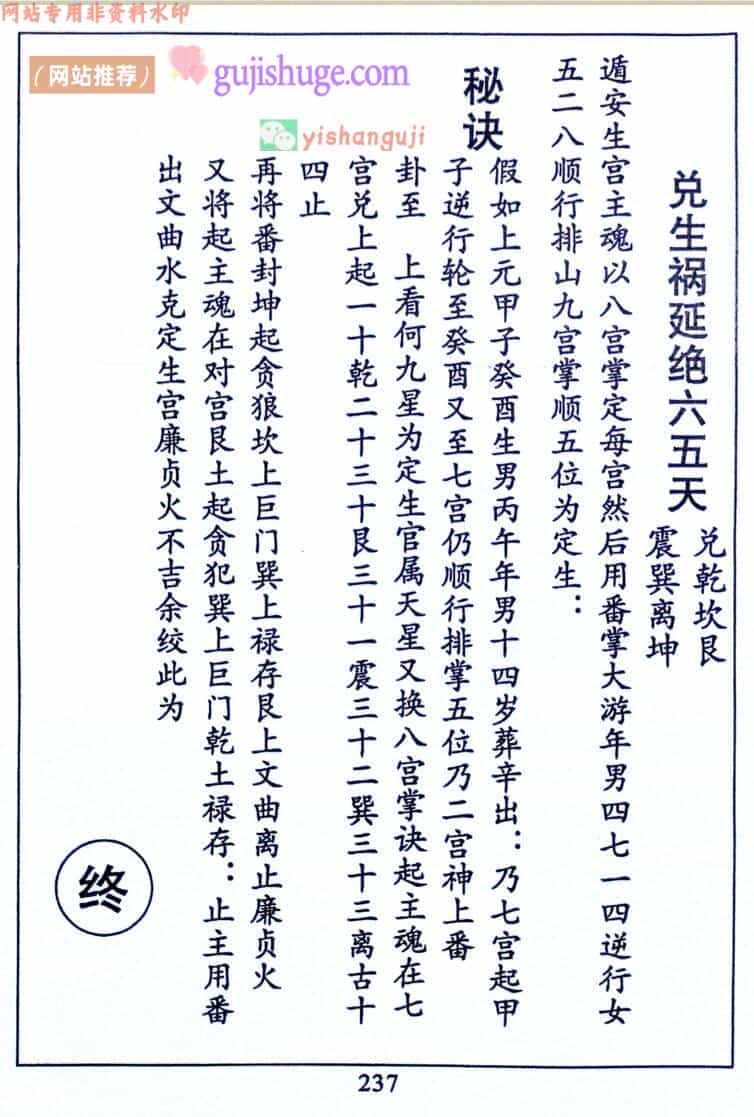 网站专用非资料水印
（网站推荐）
gujishuge.com
yishanguji
兑生祸延绝六五天
兑乾坎艮
震巽离坤
遁安生宫主魂以八宫掌定每宫然后用番掌大游年男四七一四逆行女
五二八顺行排山九宫掌顺五位为定生：
秘诀
假如上元甲子癸酉生男丙午年男十四岁葬辛出：乃七宫起甲
子逆行轮至癸酉又至七宫仍顺行排掌五位乃二宫神上番
卦至　上看何九星为定生官属天星又换八宫掌诀起主魂在七
宫兑上起一十乾二十三十艮三十一震三十二巽三十三离古十
四止
再将番封坤起贪狼坎上巨门巽上禄存艮上文曲离止廉贞火
又将起主魂在对宫艮土起贪犯巽上巨门乾土禄存：止主用番
出文曲水克定生宫廉贞火不吉余绞此为
终
237